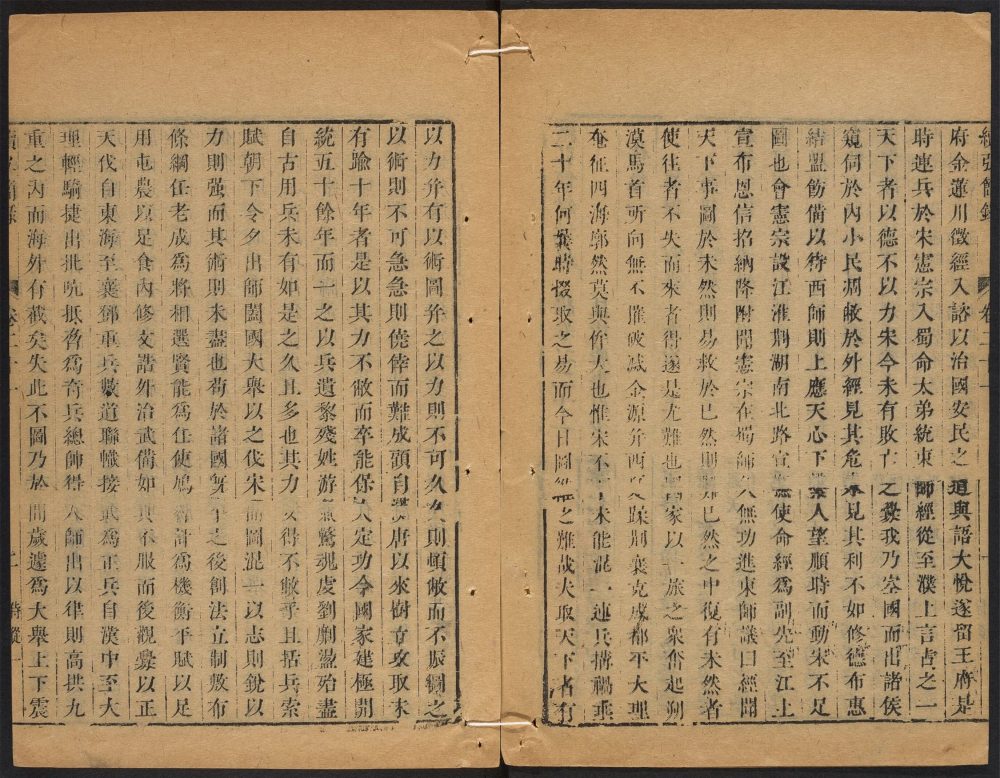 續弘簡錄 卷二十一
府金蓮川徵經入諮以治國安民之道與語大悅遂留王府是
時連兵於宋憲宗入蜀命太弟統東師經從至濮上言古之一
天下者以德不以力宋今未有敗亡之釁我乃空國而出諸侯
窺伺於內小民凋敝於外經見其危未見其利不如修德布惠
結盟飭備以待西師則上應天心下繫人望順時而動宋不足
圖也會憲宗設江淮荆湖南北路宣撫使命經為副先至江上
宣布恩信招納降附聞憲宗在蜀師久無功進東師議曰經聞
天下事圖於未然則易救於已然則難已然之中復有未然者
使往者不失而來者得遂是尤難也國家以一旅之衆奮起朔
漠馬首所向無不摧破滅金源并西夏蹂荆襄克成都平大理
奄征四海郭然莫與侔大也惟宋不下未能混一連兵搆禍垂
二十年何曩時掇取之易而今日圖維之難哉夫取天下者有
以力并有以術圖并之以力則不可久久則頓敝而不振圖之
以術則不可急急則僥倖而難成頭自漢唐以來樹立攻取未
有踰十年者是以其力不敝而卒能保大定功今國家建極開
統五十餘年而一之以兵遺黎殘姓游魚驚魂虔劉劘盪殆盡
自古用兵未有如是之久且多也其力又得不敝乎且括兵索
賦朝下令夕出師闔國大舉以之伐宋而圖混一以志則銳以
力則强而其術則未盡也苟於諸國既平之後創法立制敷布
條綱任老成為將相選賢能為任使鳩智計為機衡平賦以足
用屯農以足食內修文誥外治武備如其不服而後觀釁以正
天伐自東海至襄鄧重兵數道聯幟接武為正兵自漢中至大
理輕騎捷出批吭抵脅為奇兵總師得人師出以律則高拱九
重之內而海外有截矣失此不圖乃於間歲遽為大舉上下震